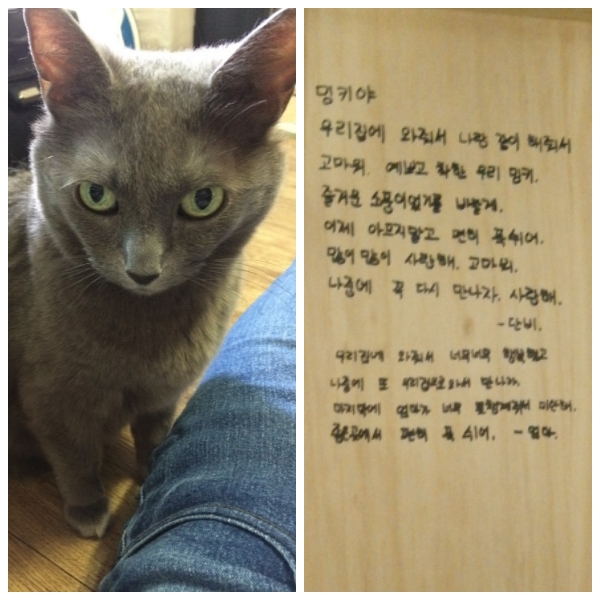 멍키야
우리집에 와줘서 나랑 같이 해줘서
고마워. 예쁘고 착한 우리 멍키.
즐거운 소풍이었기를 바랄게.
이제 아프지말고 편히 푹쉬어.
많이 많이 사랑해. 고마워.
나중에 꼭 다시 만나자. 사랑해.
-단비.
우리집에 와줘서 너무너무 행복했고
나중에 또 우리집으로와서 만나자.
마지막에 엄마가 너무 못함께해줘서 미안해.
좋은곳에서 편히 푹 쉬어. - 엄마.